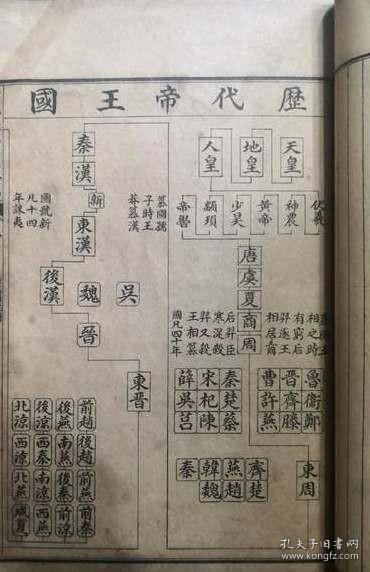 歷代帝王國
天皇 地皇 人皇
伏羲 神農 黃帝 少昊 顓頊 帝嚳
唐
虞
夏
商
周
相之時
有窮后
羿逐王
相居商
后羿臣
寒浞殺
羿又殺
王相篡
國凡四十年
魯 衛 鄭
晉 齊 滕
曹 許 燕
秦 楚 蔡
宋 杞 陳
薛 吳 莒
東周
齊 楚
燕 趙
韓 魏
秦
秦
漢
新
篡國號
子時王
莽篡漢
國號新
凡十四
年誅夷
東漢
後漢 魏 吳
晉
東晉
前趙 後趙 前燕 前秦
後燕 南燕 後秦 前涼
後涼 西秦 南涼 西燕
北涼 西涼 北燕 成夏
孔夫子旧书网
www.kongfz.com